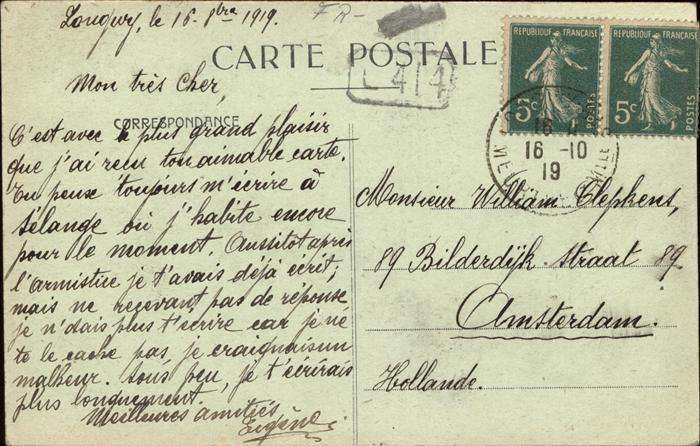 Longwy, le 16 - 8bre 1919.
FR-
CARTE POSTALE
L 414
Mon très Cher,
CORRESPONDANCE
C'est avec le plus grand plaisir
que j'ai reçu ton aimable carte.
Tu peux toujours m'écrire à
Sélange où j'habite encore
pour le moment. Aussitôt après
l'armistice je t'avais déjà écrit;
mais ne recevant pas de réponse
je n'osais plus t'écrire car je ne
te le cache pas, je craignais un
malheur. Sous peu, je t'écrirais
plus longuement.
Meilleures amitiés
Eugène
REPUBLIQUE FRANÇAISE
5c
POSTES
REPUBLIQUE FRANÇAISE
5c
POSTES
16 -10
19
Monsieur William Clepkens,
89 Bilderdijk-Straat 89
Amsterdam.
Hollande.